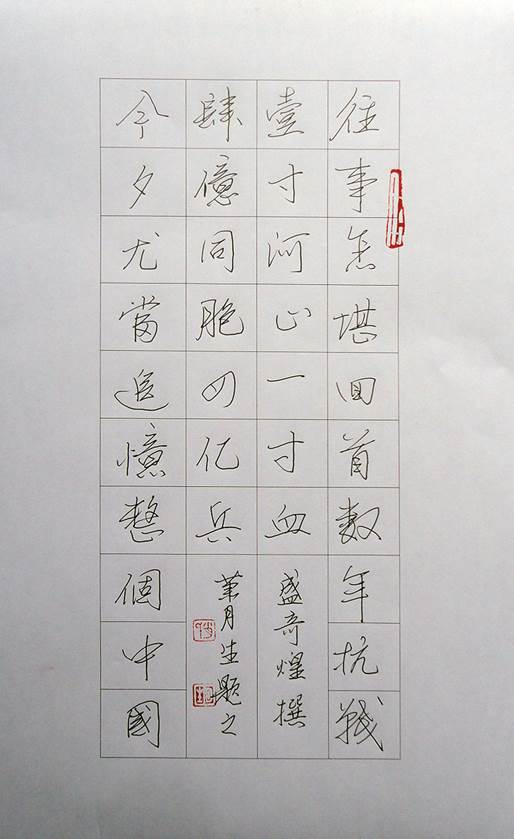 往事怎堪回首數年抗戰
壹寸河山一寸血
盛奇煌撰
肆億同胞四亿兵
月生題之
今夕尤當追憶整個中國